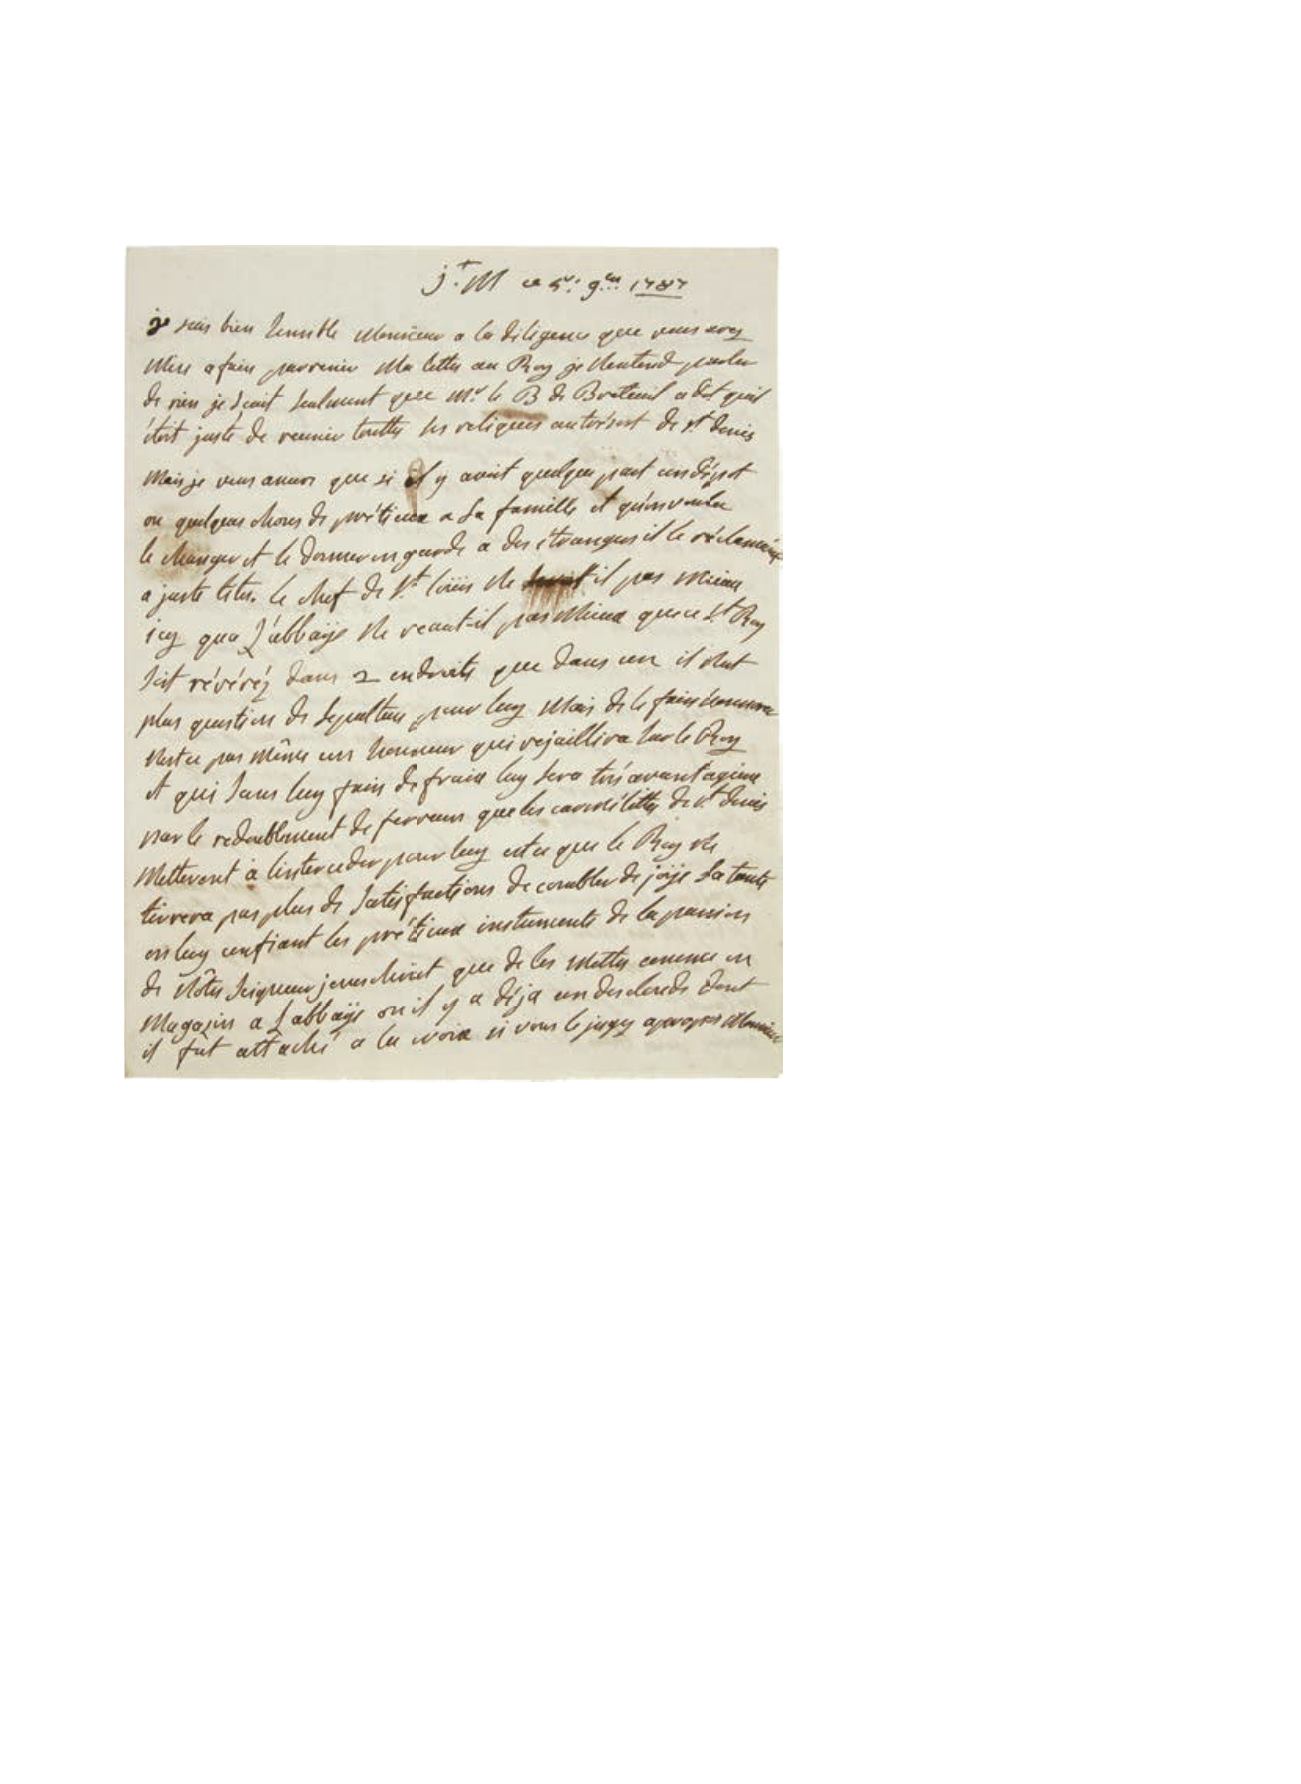 j.+M ce 5e. 9bre 1787
je suis bien sensible Monsieur a la diligence que vous avez
Mise a faire parvenir Ma lettre au Roy je N'entend parler
de rien je scait seulement que Mr. le B de Breteuil a dit qu'il
étoit juste de reunir touttes les reliques au trésort de st. denis
Mais je vous avoue que si il y avoit quelque part un dépot
ou quelques choses de prétieux a sa famille et qu'on voulu
le changer et le donner en garde a des étrangers il le réclameroit
a juste titre. le chef de st. loüis Ne seroit il pas mieux
icy qua L'abbaÿe Ne veaut-il pas Mieux que ce st. Roy
soit révéréz dans 2 endroits que dans un il n'est
plus question de sepulture pour luy Mais de le faire honnorer
N'est ce pas même un honneur qui rejaillira sur le Roy
et qui sans luy faire de fraix luy sera très avantageux
par le redoublement de ferveur que les carmélittes de st. denis
Metteront à l'interceder pour luy est ce que le Roy Ne
tirrera pas plus de satisfactions de combler de joÿe sa tante
en luy confiant les prétieux instruments de la passion
de Nôtre Seigneur jesus christ que de les Mettre comme en
Magazin a L'abbaÿe ou il y a déja un des clouds dont
il fut attaché a la croix si vous le jugez apropos Monsieur